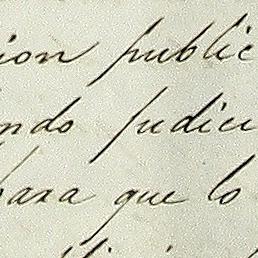 ion public
ndo Judici
para que lo